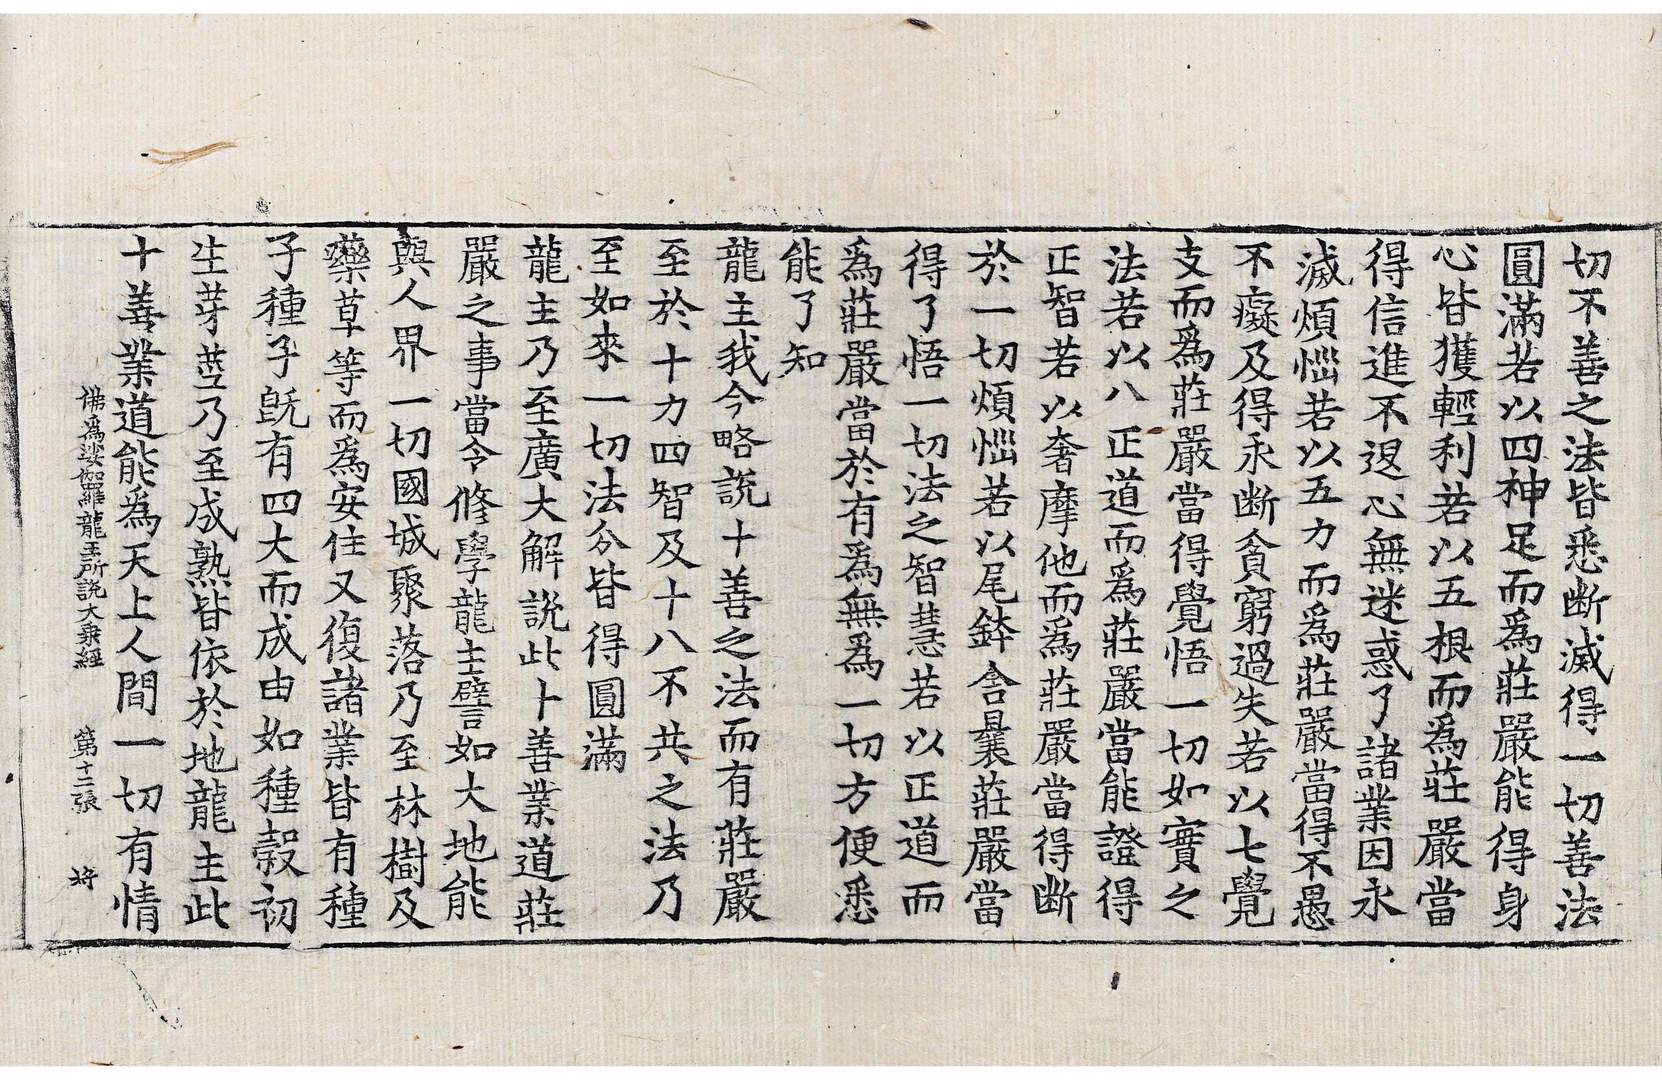 切不善之法皆悉断滅得一切善法
圓滿若以四神足而爲莊嚴能得身
心皆獲輕利若以五根而爲莊嚴當
得信進不退心無迷惑了諸業因永
滅煩惱若以五力而爲莊嚴當得不愚
不癡及得永断貪窮過失若以七覺
支而爲莊嚴當得覺悟一切如實之
法若以八正道而爲莊嚴當能證得
正智若以奢摩他而爲莊嚴當得断
於一切煩惱若以尾鉢舍曩莊嚴當
得了悟一切法之智慧若以正道而
爲莊嚴當於有爲無爲一切方便悉
能了知
龍主我今略說十善之法而有莊嚴
至於十力四智及十八不共之法乃
至如來一切法分皆得圓滿
龍主乃至廣大解說此十善業道莊
嚴之事當令修學龍主譬如大地能
與人界一切國城聚落乃至林樹及
藥草等而爲安住又復諸業皆有種
子種子旣有四大而成由如種穀初
生芽莖乃至成熟皆依於地龍主此
十善業道能爲天上人間一切有情
佛爲娑伽羅龍王所說大乘經　第十二張　將